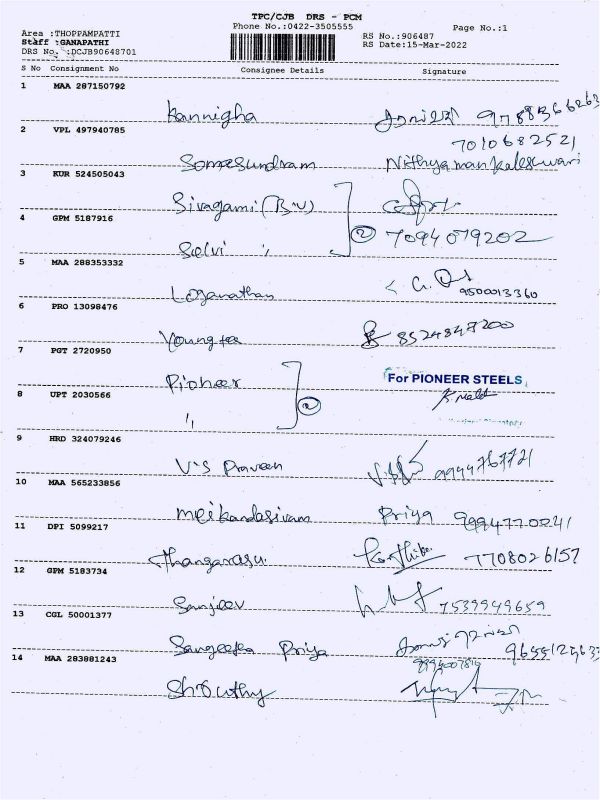 TPC/CJB DRS - PCM
Phone No.:0422-3505555
Page No.:1
Area :THOPPAMPATTI
Staff :GANAPATHI
DRS No. :DCJB90648701
RS No.:906487
RS Date:15-Mar-2022
S No Consignment No Consignee Details Signature
1 MAA 287150792
Kannigha
2 VPL 497940785
7010682521
Somesundram Nithya
3 KUR 524505043
Sivagami (B.U)
4 GPM 5187916
2 7094079202
Selvi "
5 MAA 288353332
Loganathan 9500013360
6 PRO 13098476
Young tea 8524847200
7 PGT 2720950
Pioneer For PIONEER STEELS
8 UPT 2030566
" 2
9 HRD 324079246
V S Praveen 9944767721
10 MAA 565233856
Meikandasivam Priya 9994770241
11 DPI 5099217
Thangarasu 7708026157
12 GPM 5183734
Sanjeev 7539949659
13 CGL 50001377
Sangeetha Priya
14 MAA 283881243
Shrouthy